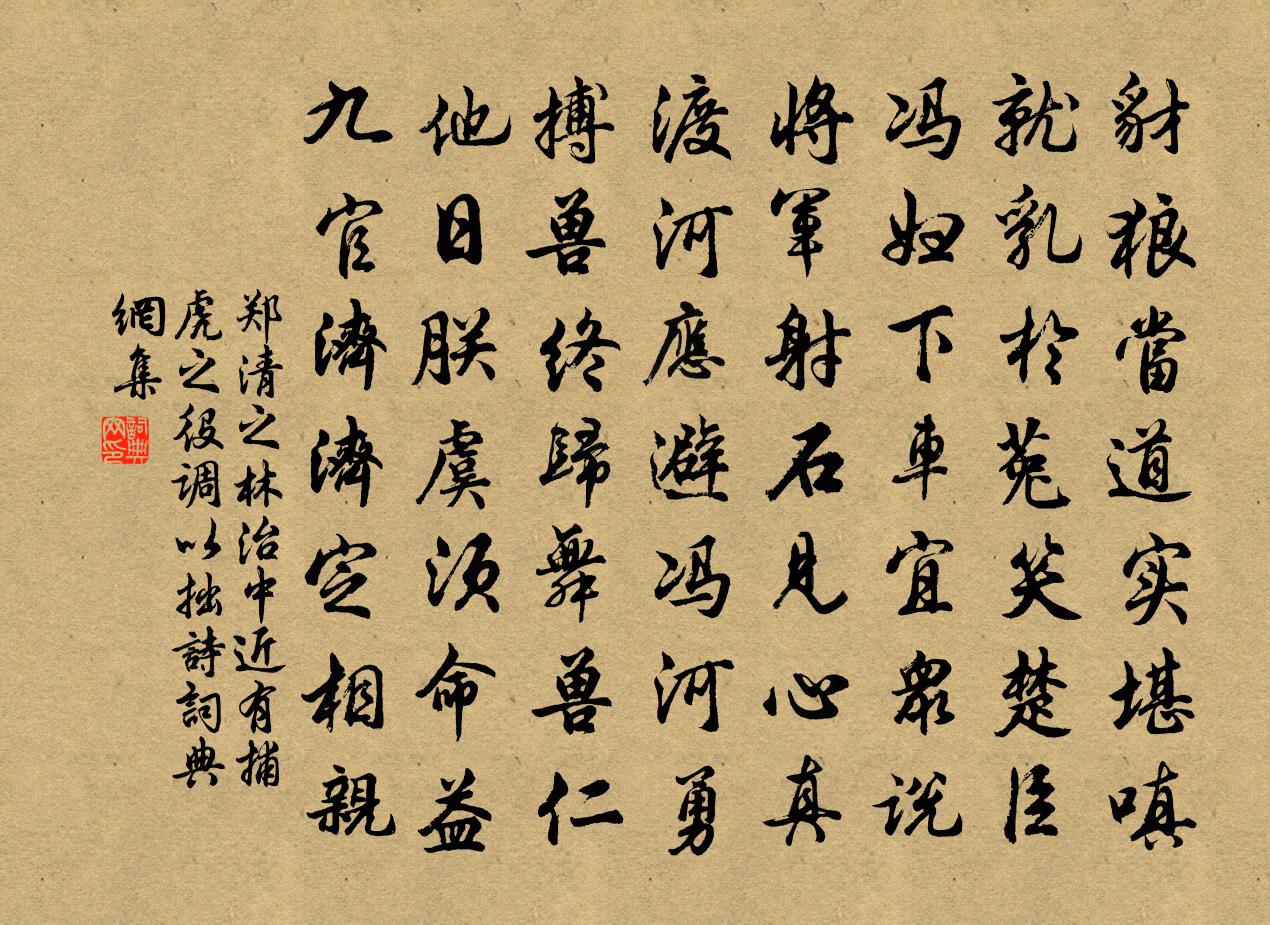 豺狼當道实堪嗔
就乳於菟笑楚臣
冯妇下車宜眾说
將軍射石見心真
渡河應避冯河勇
搏兽终歸舞兽仁
他日朕虞须命益
九官濟濟定相親
郑清之林治中近有捕
虎之役调以拙詩詞典
網集
詞典网印